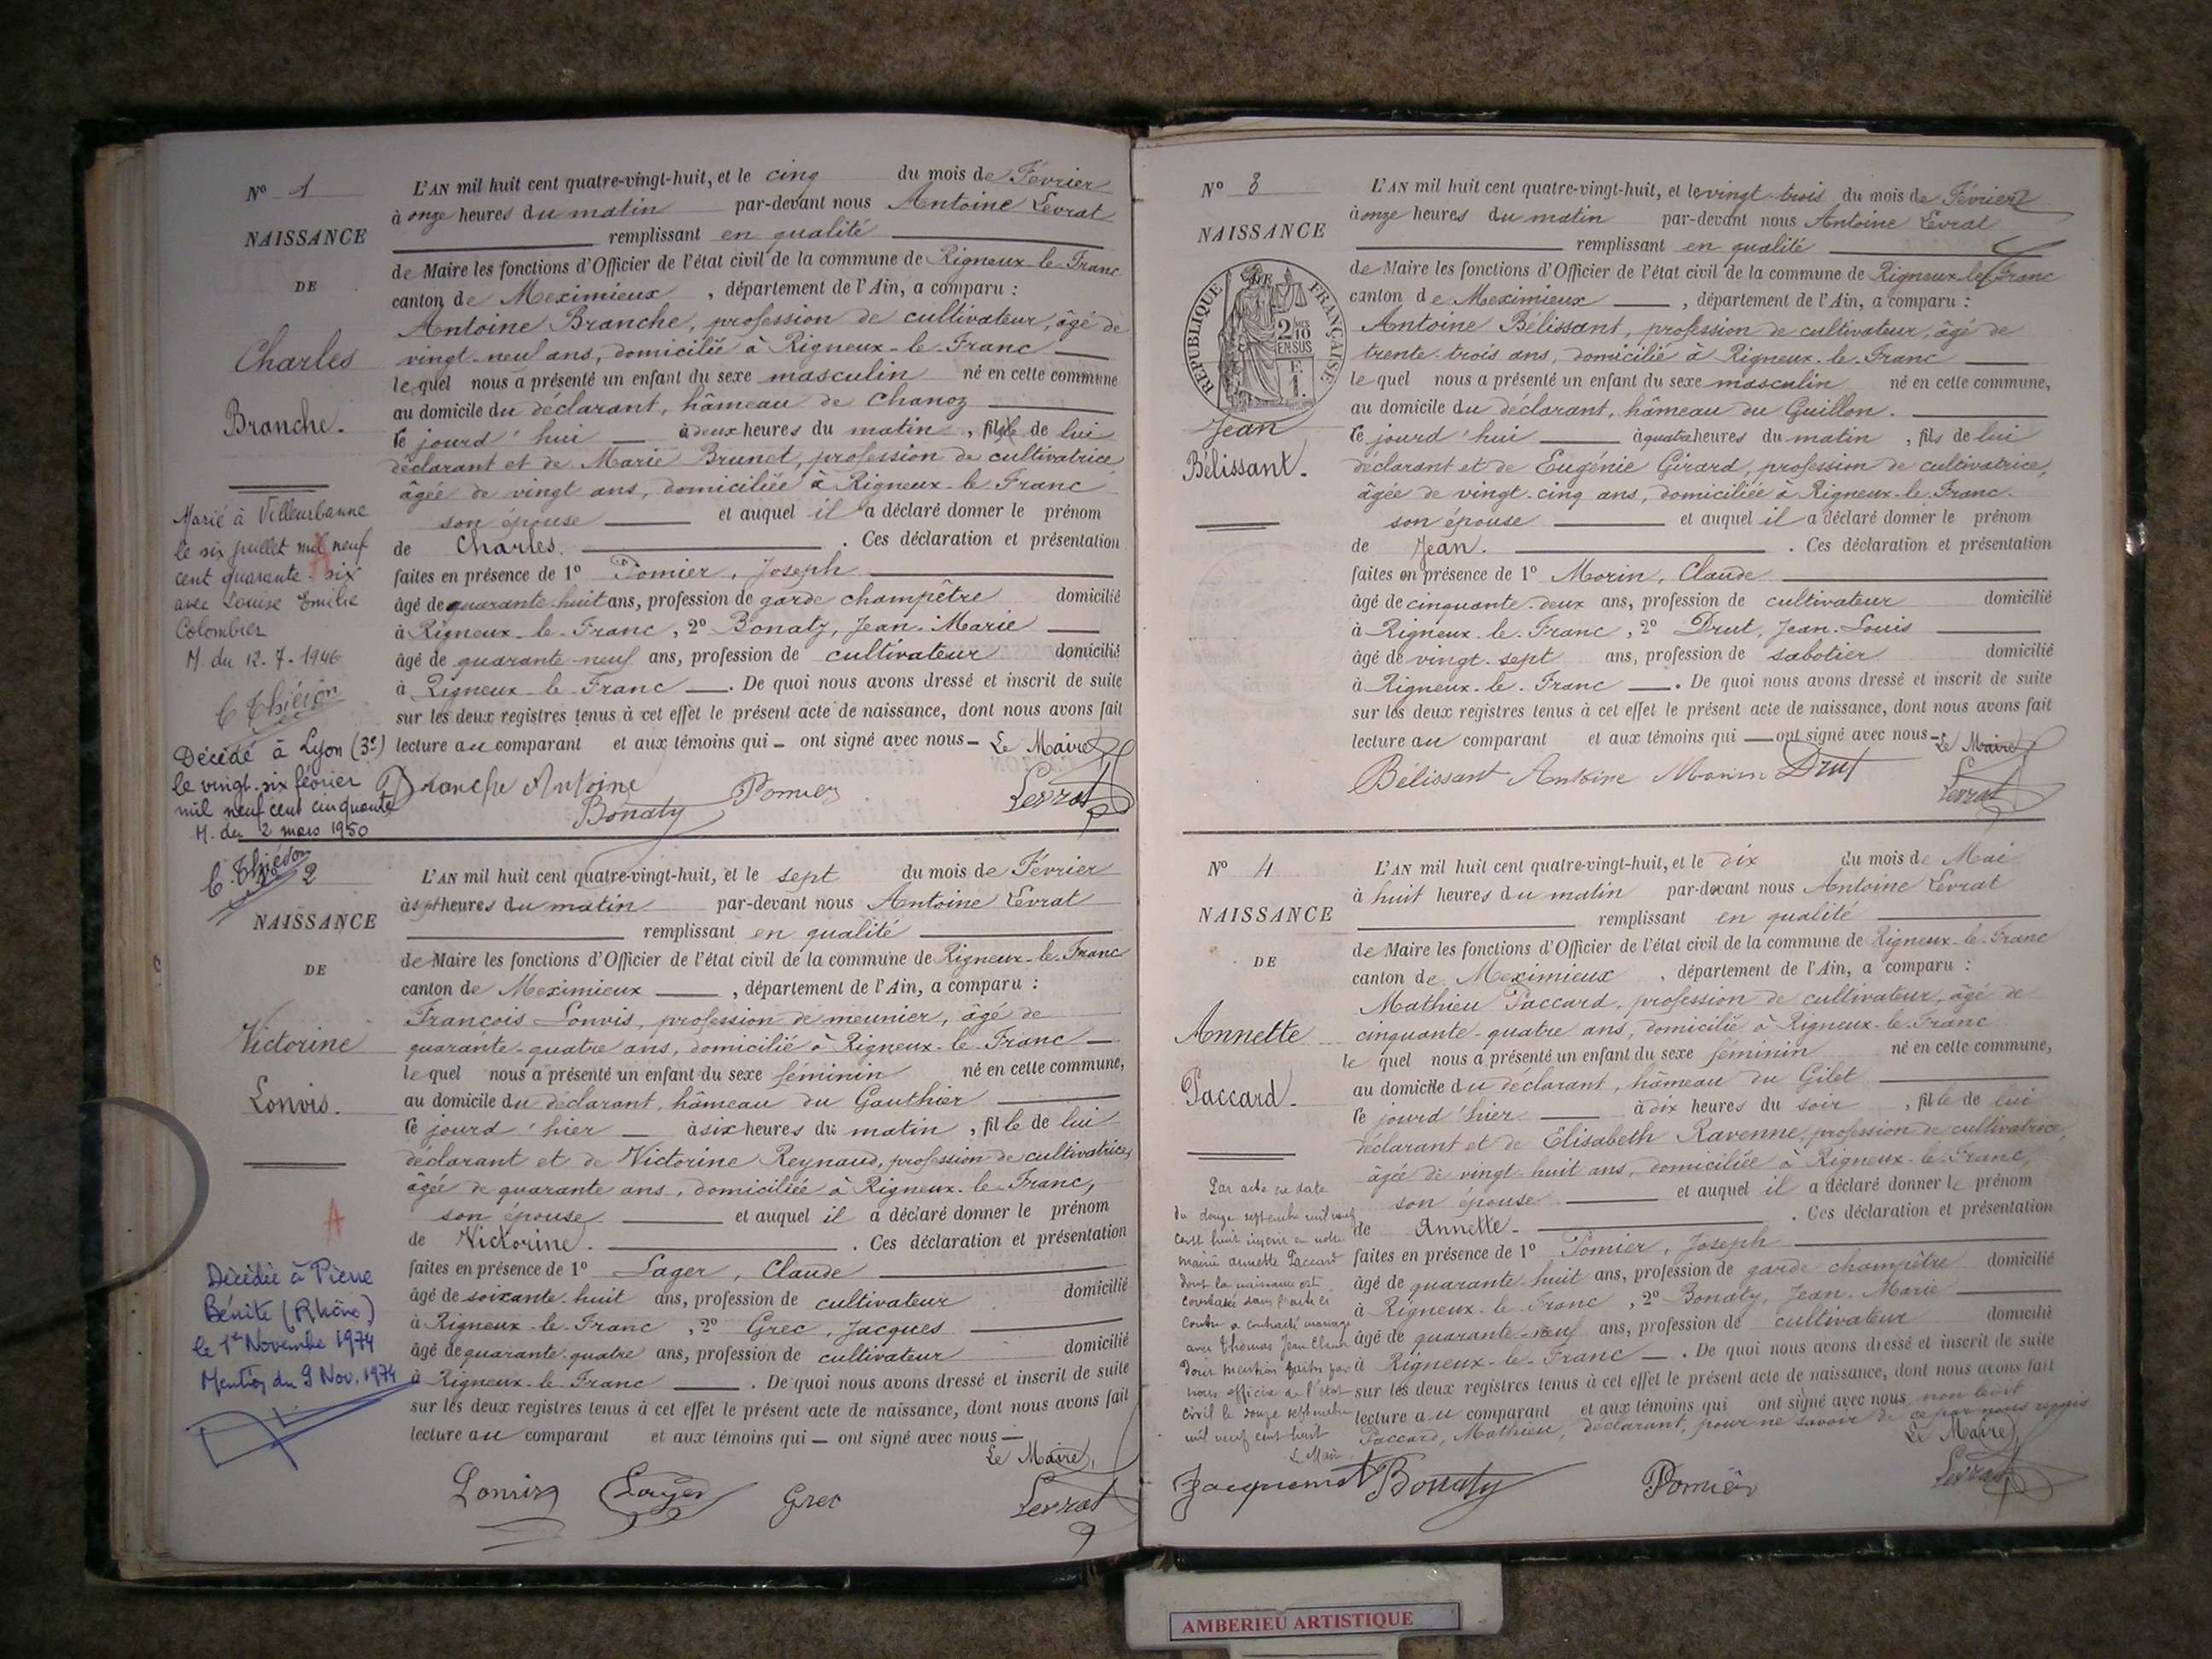 N° 1
NAISSANCE
DE
Charles
Branche.
L'AN mil huit cent quatre-vingt-huit, et le cinq du mois de Février
à onze heures du matin par-devant nous Antoine Levrat
remplissant en qualité
de Maire les fonctions d'Officier de l'état civil de la commune de Rigneux-le-Franc
canton de Meximieux, département de l'Ain, a comparu :
Antoine Branche, profession de cultivateur, âgé de
vingt-neuf ans, domicilié à Rigneux-le-Franc
lequel nous a présenté un enfant du sexe masculin né en cette commune
au domicile du déclarant, hâmeau de Chanoz
ce jourd'hui à deux heures du matin, fils de lui
déclarant et de Marie Brunet, profession de cultivatrice
âgée de vingt ans, domiciliée à Rigneux-le-Franc
son épouse et auquel il a déclaré donner le prénom
de Charles. Ces déclaration et présentation
faites en présence de 1° Pomier, Joseph
âgé de quarante-huit ans, profession de garde champêtre domicilié
à Rigneux-le-Franc, 2° Bonaty, Jean-Marie
âgé de quarante-neuf ans, profession de cultivateur domicilié
à Rigneux-le-Franc. De quoi nous avons dressé et inscrit de suite
sur les deux registres tenus à cet effet le présent acte de naissance, dont nous avons fait
lecture au comparant et aux témoins qui ont signé avec nous Le Maire
Branche Antoine
Bonaty Pomier Levrat
Marié à Villeurbanne
le six juillet mil neuf
cent quarante-six
avec Louise Emilie
Colombier
M. du 12-7-1946
C Thiévon
Décédé à Lyon (3e)
le vingt-six février
mil neuf cent cinquante
M. du 2 mars 1950
C. Thiévon
A
N° 2
NAISSANCE
DE
Victorine
Lonvis.
L'AN mil huit cent quatre-vingt-huit, et le sept du mois de Février
à sept heures du matin par-devant nous Antoine Levrat
remplissant en qualité
de Maire les fonctions d'Officier de l'état civil de la commune de Rigneux-le-Franc
canton de Meximieux, département de l'Ain, a comparu :
François Lonvis, profession de meunier, âgé de
quarante-quatre ans, domicilié à Rigneux-le-Franc
lequel nous a présenté un enfant du sexe féminin né en cette commune,
au domicile du déclarant, hâmeau du Gauthier
ce jourd'hier à six heures du matin, fille de lui
déclarant et de Victorine Reynaud, profession de cultivatrice,
âgée de quarante ans, domiciliée à Rigneux-le-Franc,
son épouse et auquel il a déclaré donner le prénom
de Victorine. Ces déclaration et présentation
faites en présence de 1° Lager, Claude
âgé de soixante-huit ans, profession de cultivateur domicilié
à Rigneux-le-Franc, 2° Grec, Jacques
âgé de quarante-quatre ans, profession de cultivateur domicilié
à Rigneux-le-Franc. De quoi nous avons dressé et inscrit de suite
sur les deux registres tenus à cet effet le présent acte de naissance, dont nous avons fait
lecture au comparant et aux témoins qui ont signé avec nous
Le Maire,
Lonvis Lager Grec Levrat
A
Décédée à Pierre
Bénite (Rhône)
le 1er Novembre 1974
Mention du 9 Nov. 1974
N° 3
NAISSANCE
DE
REPUBLIQUE FRANÇAISE
2/10 EN SUS
Jean
Bélissant.
L'AN mil huit cent quatre-vingt-huit, et le vingt-trois du mois de Février
à onze heures du matin par-devant nous Antoine Levrat
remplissant en qualité
de Maire les fonctions d'Officier de l'état civil de la commune de Rigneux-le-Franc
canton de Meximieux, département de l'Ain, a comparu :
Antoine Bélissant, profession de cultivateur, âgé de
trente-trois ans, domicilié à Rigneux-le-Franc
lequel nous a présenté un enfant du sexe masculin né en cette commune,
au domicile du déclarant, hâmeau du Guillon.
ce jourd'hui à quatre heures du matin, fils de lui
déclarant et de Eugénie Girard, profession de cultivatrice,
âgée de vingt-cinq ans, domiciliée à Rigneux-le-Franc.
son épouse et auquel il a déclaré donner le prénom
de Jean. Ces déclaration et présentation
faites en présence de 1° Morin, Claude
âgé de cinquante-deux ans, profession de cultivateur domicilié
à Rigneux-le-Franc, 2° Drut, Jean-Louis
âgé de vingt-sept ans, profession de sabotier domicilié
à Rigneux-le-Franc. De quoi nous avons dressé et inscrit de suite
sur les deux registres tenus à cet effet le présent acte de naissance, dont nous avons fait
lecture au comparant et aux témoins qui ont signé avec nous Le Maire
Bélissant Antoine Morin Drut Levrat
N° 4
NAISSANCE
DE
Annette
Paccard.
L'AN mil huit cent quatre-vingt-huit, et le dix du mois de Mai
à huit heures du matin par-devant nous Antoine Levrat
remplissant en qualité
de Maire les fonctions d'Officier de l'état civil de la commune de Rigneux-le-Franc
canton de Meximieux, département de l'Ain, a comparu :
Mathieu Paccard, profession de cultivateur, âgé de
cinquante-quatre ans, domicilié à Rigneux-le-Franc
lequel nous a présenté un enfant du sexe féminin né en cette commune,
au domicile du déclarant, hâmeau du Gilet
ce jourd'hier à dix heures du soir, fille de lui
déclarant et de Elisabeth Ravenne, profession de cultivatrice,
âgée de vingt-huit ans, domiciliée à Rigneux-le-Franc,
son épouse et auquel il a déclaré donner le prénom
de Annette. Ces déclaration et présentation
faites en présence de 1° Pomier, Joseph
âgé de quarante-huit ans, profession de garde champêtre domicilié
à Rigneux-le-Franc, 2° Bonaty, Jean-Marie
âgé de quarante-neuf ans, profession de cultivateur domicilié
à Rigneux-le-Franc. De quoi nous avons dressé et inscrit de suite
sur les deux registres tenus à cet effet le présent acte de naissance, dont nous avons fait
lecture au comparant et aux témoins qui ont signé avec nous non
Paccard, Mathieu, déclarant, pour ne savoir de ce par nous requis
Le Maire,
Par acte en date
du douze septembre mil neuf
cent huit inscrit en notre
mairie Annette Paccard
dont la naissance est
constatée dans l'acte ci
contre a contracté mariage
avec Thomas Jean Claude
Dont mention faite par
nous officier de l'état
civil le douze septembre
mil neuf cent huit
Le Maire
Jacquemet Bonaty Pomier Levrat
AMBERIEU ARTISTIQUE